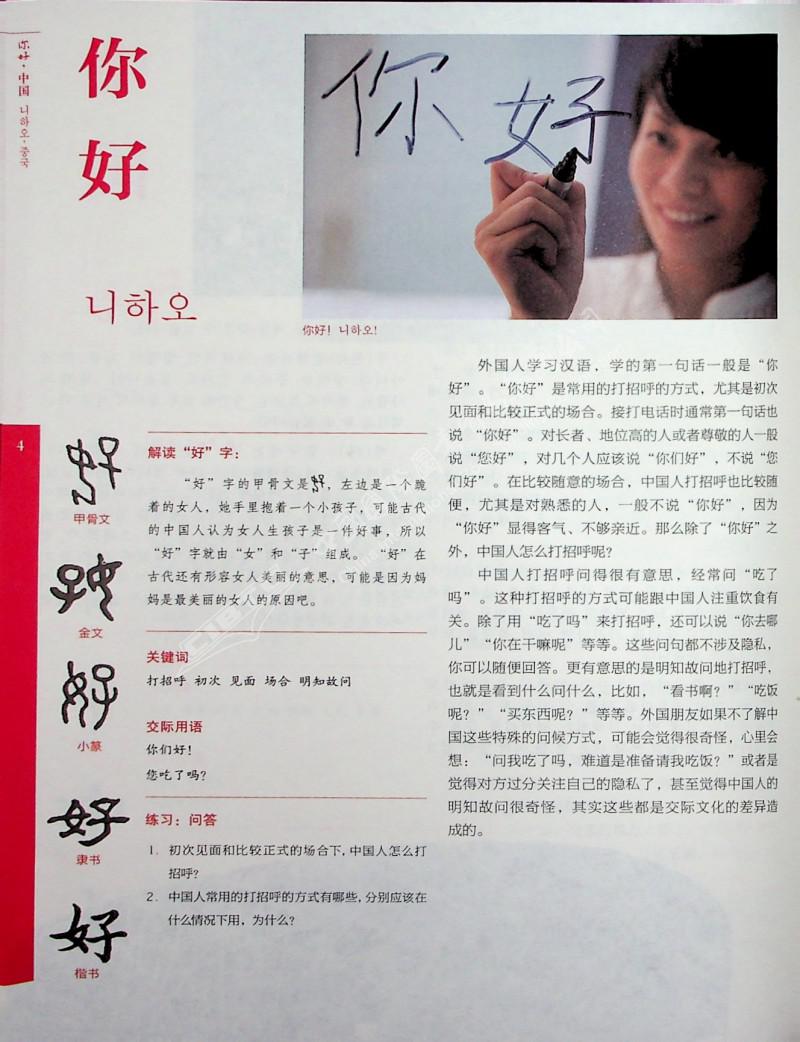 你好·中国 니하오·중국
你
好
니하오
你好
你好！니하오!
4
甲骨文
金文
小篆
隶书
楷书
好
解读“好”字：
“好”字的甲骨文是 ，左边是一个跪
着的女人，她手里抱着一个小孩子，可能古代
的中国人认为女人生孩子是一件好事，所以
“好”字就由“女”和“子”组成。 “好”在
古代还有形容女人美丽的意思，可能是因为妈
妈是最美丽的女人的原因吧。
关键词
打招呼 初次 见面 场合 明知故问
交际用语
你们好！
您吃了吗？
练习：问答
1. 初次见面和比较正式的场合下，中国人怎么打
招呼？
2. 中国人常用的打招呼的方式有哪些，分别应该在
什么情况下用，为什么？
外国人学习汉语，学的第一句话一般是“你
好”。“你好”是常用的打招呼的方式，尤其是初次
见面和比较正式的场合。接打电话时通常第一句话也
说 “你好”。对长者、地位高的人或者尊敬的人一般
说“您好”，对几个人应该说“你们好”，不说“您
们好”。在比较随意的场合，中国人打招呼也比较随
便，尤其是对熟悉的人，一般不说“你好”，因为
“你好”显得客气、不够亲近。那么除了“你好”之
外，中国人怎么打招呼呢？
中国人打招呼问得很有意思，经常问“吃了
吗”。这种打招呼的方式可能跟中国人注重饮食有
关。除了用“吃了吗”来打招呼，还可以说“你去哪
儿”“你在干嘛呢”等等。这些问句都不涉及隐私，
你可以随便回答。更有意思的是明知故问地打招呼，
也就是看到什么问什么，比如，“看书啊？”“吃饭
呢？”“买东西呢？”等等。外国朋友如果不了解中
国这些特殊的问候方式，可能会觉得很奇怪，心里会
想：“问我吃了吗，难道是准备请我吃饭？”或者是
觉得对方过分关注自己的隐私了，甚至觉得中国人的
明知故问很奇怪，其实这些都是交际文化的差异造
成的。